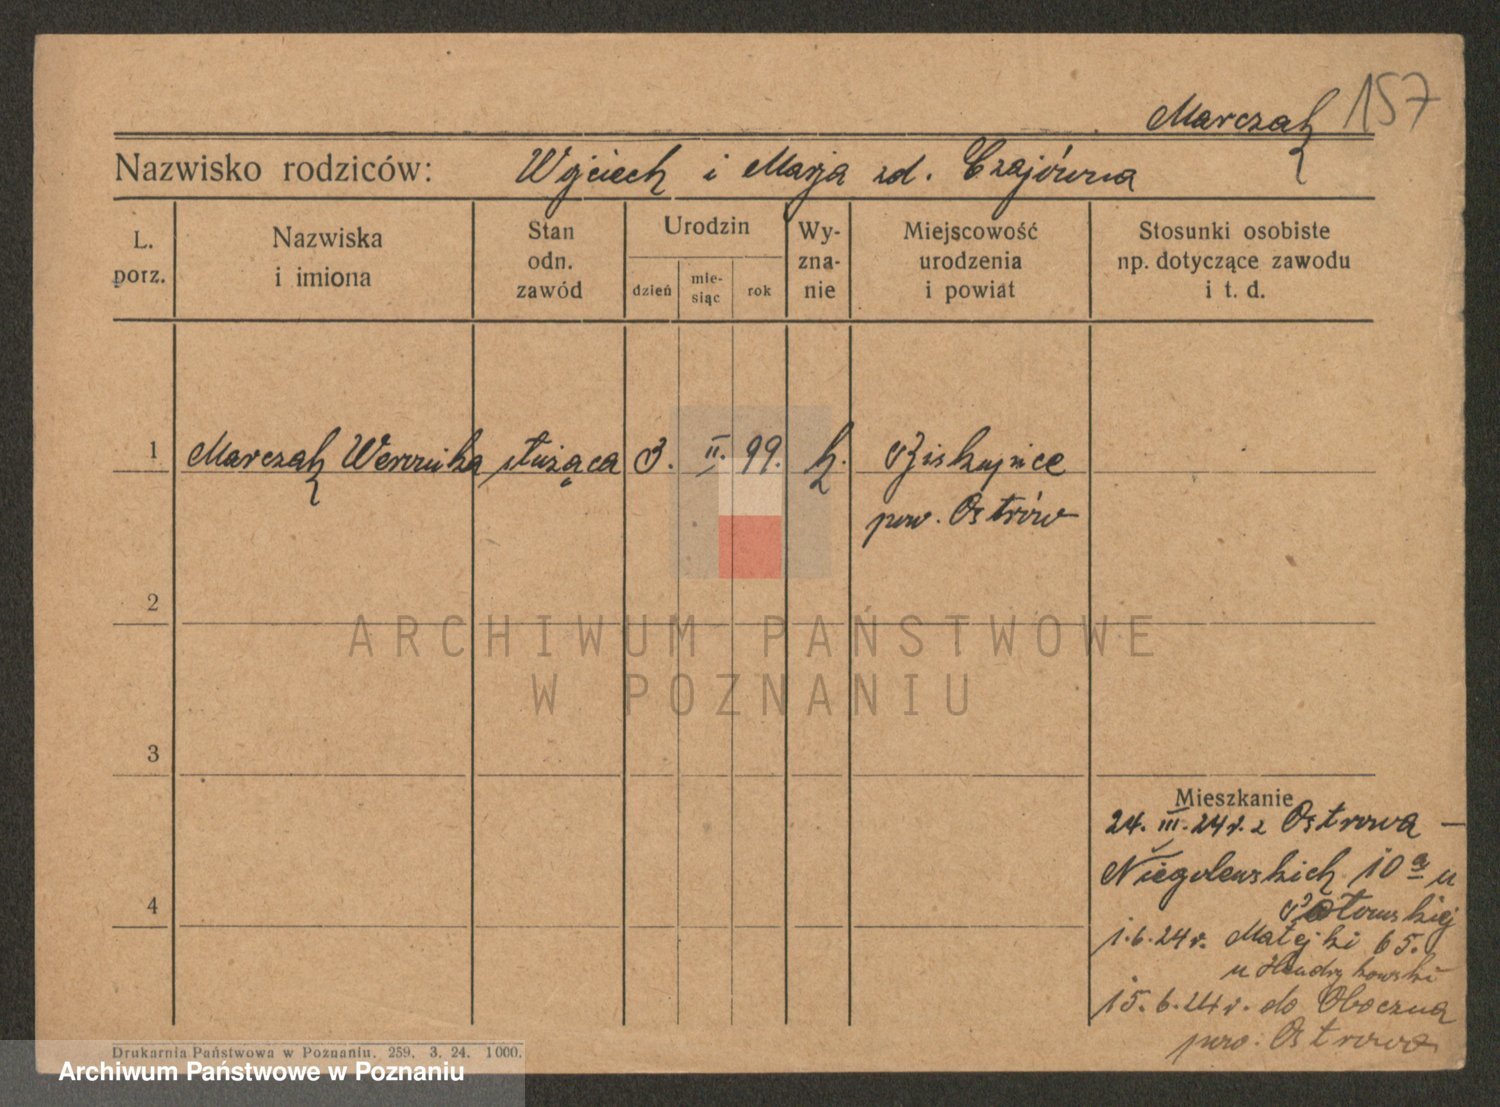 157
Marczak
Nazwisko rodziców: Wojciech i Marja zd. Czajówna
L. porz.
Nazwiska i imiona
Stan odn. zawód
Urodzin
dzień
mie-siąc
rok
Wy-zna-nie
Miejscowość urodzenia i powiat
Stosunki osobiste np. dotyczące zawodu i t. d.
1 Marczak Weronika służąca 3. II. 99. k. Biskupice
pow. Ostrów
2
ARCHIWUM PAŃSTWOWE
W POZNANIU
3
Mieszkanie
24. III. 24 r. z Ostrowa –
4
Niegolewskich 10 a u
1.6.24 r. Matejki 65.
u Hendrykowski
15.6.24 r. do Oboczna
pow. Ostrowo
Drukarnia Państwowa w Poznaniu. 259. 3. 24. 1000.
Archiwum Państwowe w Poznaniu